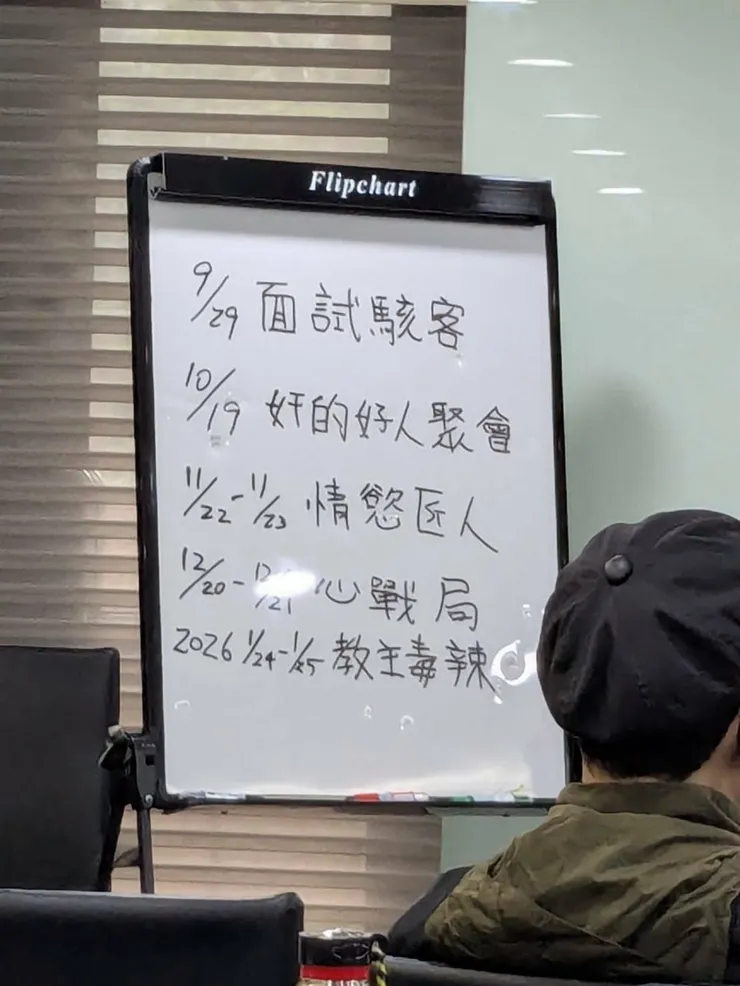 Flipchart
9/29 面試駭客
10/19 奸的好人聚會
11/22-11/23 情慾匠人
12/20-12/21 心戰局
2026 1/24-1/25 教主毒辣